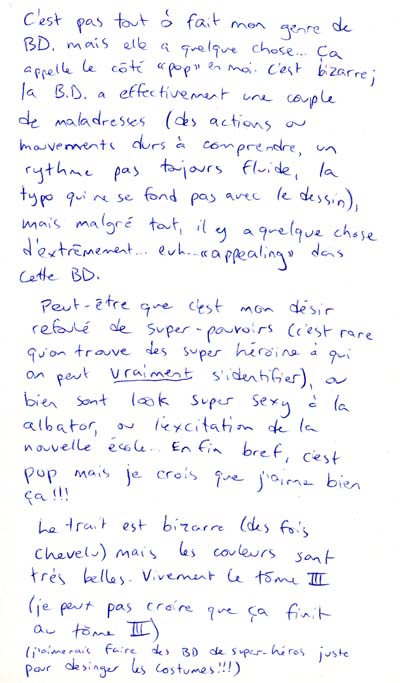 C'est pas tout à fait mon genre de
BD. mais elle a quelque chose... Ça
appelle le côté «pop» en moi. C'est bizarre;
la B.D. a effectivement une couple
de maladresses (des actions ou
mouvements durs à comprendre, un
rythme pas toujours fluide, la
typo qui ne se fond pas avec le dessin),
mais malgré tout, il y a quelque chose
d'extrêmement... euh... «appealing» dans
cette BD.
Peut-être que c'est mon désir
refoulé de super-pouvoirs (c'est rare
qu'on trouve des super héroïne à qui
on peut vraiment s'identifier), ou
bien sont look super sexy à la
albator, ou l'excitation de la
nouvelle école... Enfin bref, c'est
pop mais je crois que j'aime bien
ça!!!
Le trait est bizarre (des fois
chevelu) mais les couleurs sont
très belles. Vivement le tôme III
(je peut pas croire que ça finit
au tôme III)
(j'aimerais faire des BD de super-héros juste
pour desinger les costumes!!!)